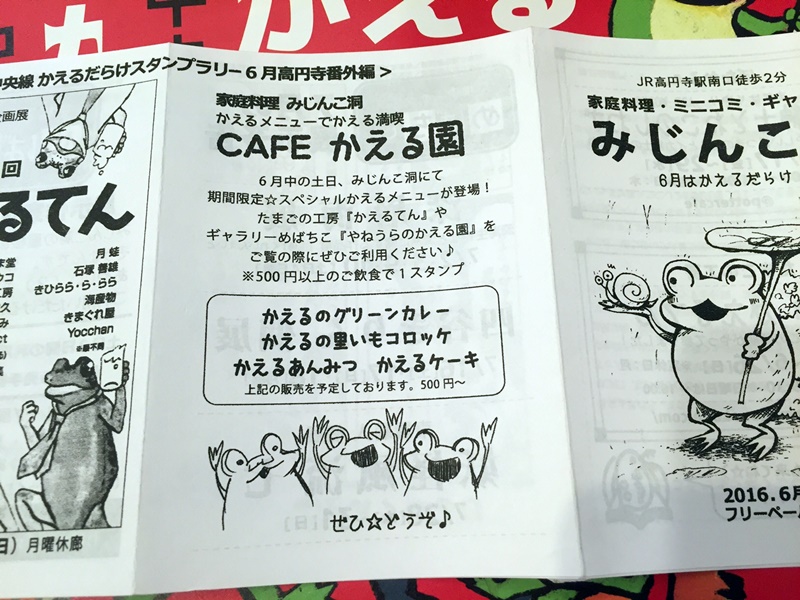 かえる
中央線 かえるだらけスタンプラリー6月高円寺番外編 >
画展
回
るてん
月 蛙
石塚 善雄
きひらら・ら・らら
海産物
きまぐれ屋
Yocchan
※順不同
日) 月曜休廊
家庭料理 みじんこ洞
かえるメニューでかえる満喫
CAFE かえる園
6月中の土日、みじんこ洞にて
期間限定☆スペシャルかえるメニューが登場!
たまごの工房『かえるてん』や
ギャラリーめばちこ『やねうらのかえる園』を
ご覧の際にぜひご利用ください♪
※500円以上のご飲食で1スタンプ
かえるのグリーンカレー
かえるの里いもコロッケ
かえるあんみつ かえるケーキ
上記の販売を予定しております。500円~
ぜひ☆どうぞ♪
JR高円寺駅南口徒歩2分
家庭料理・ミニコミ・ギャ
みじんこ
6月はかえるだらけ
2016.6月
フリーペーパ